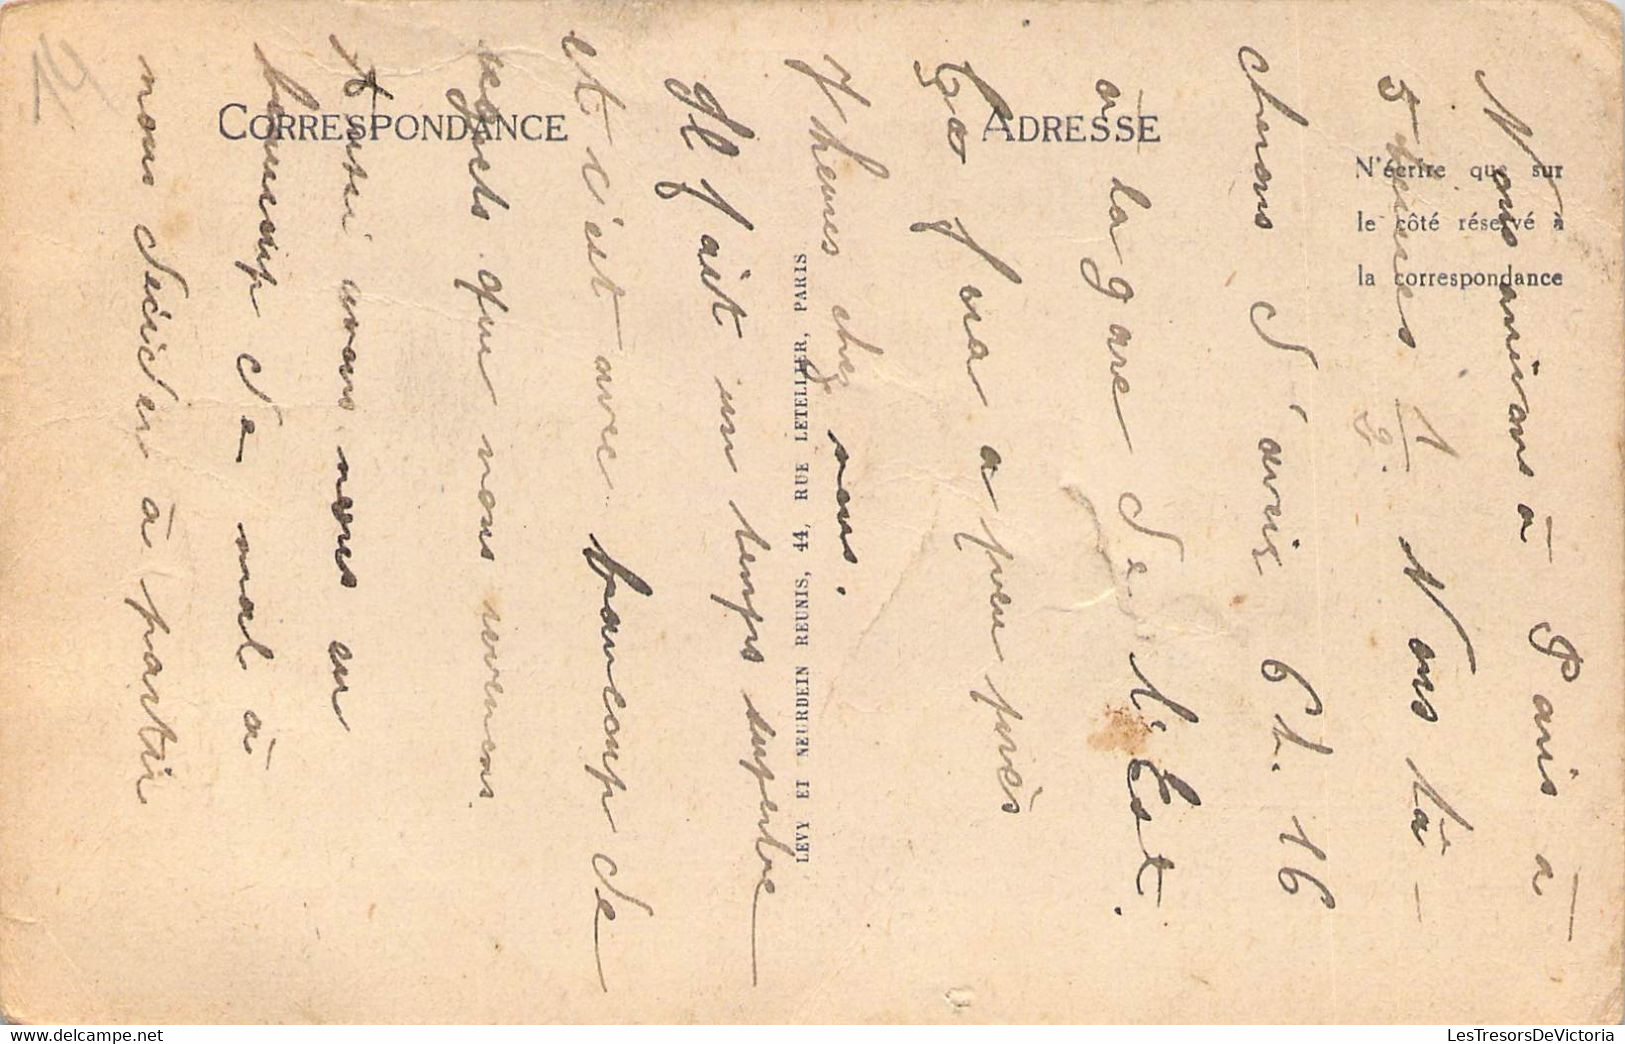 14
CORRESPONDANCE
ADRESSE
N'écrire que sur
le côté réservé à
la correspondance
LEVY ET NEURDEIN REUNIS, 44, RUE LETELLIER, PARIS
Nous arrivons à Paris à
5 heures 1/2. Nous tâ-
cherons d'avoir 6 h. 16
à la gare de l'Est.
fera a peu près
7 heures chez nous.
Il fait un temps superbe
et c'est avec beaucoup de
regrets que nous revenons.
Aussi avons nous eu
beaucoup de mal à
nous décider à partir
LesTresorsDeVictoria